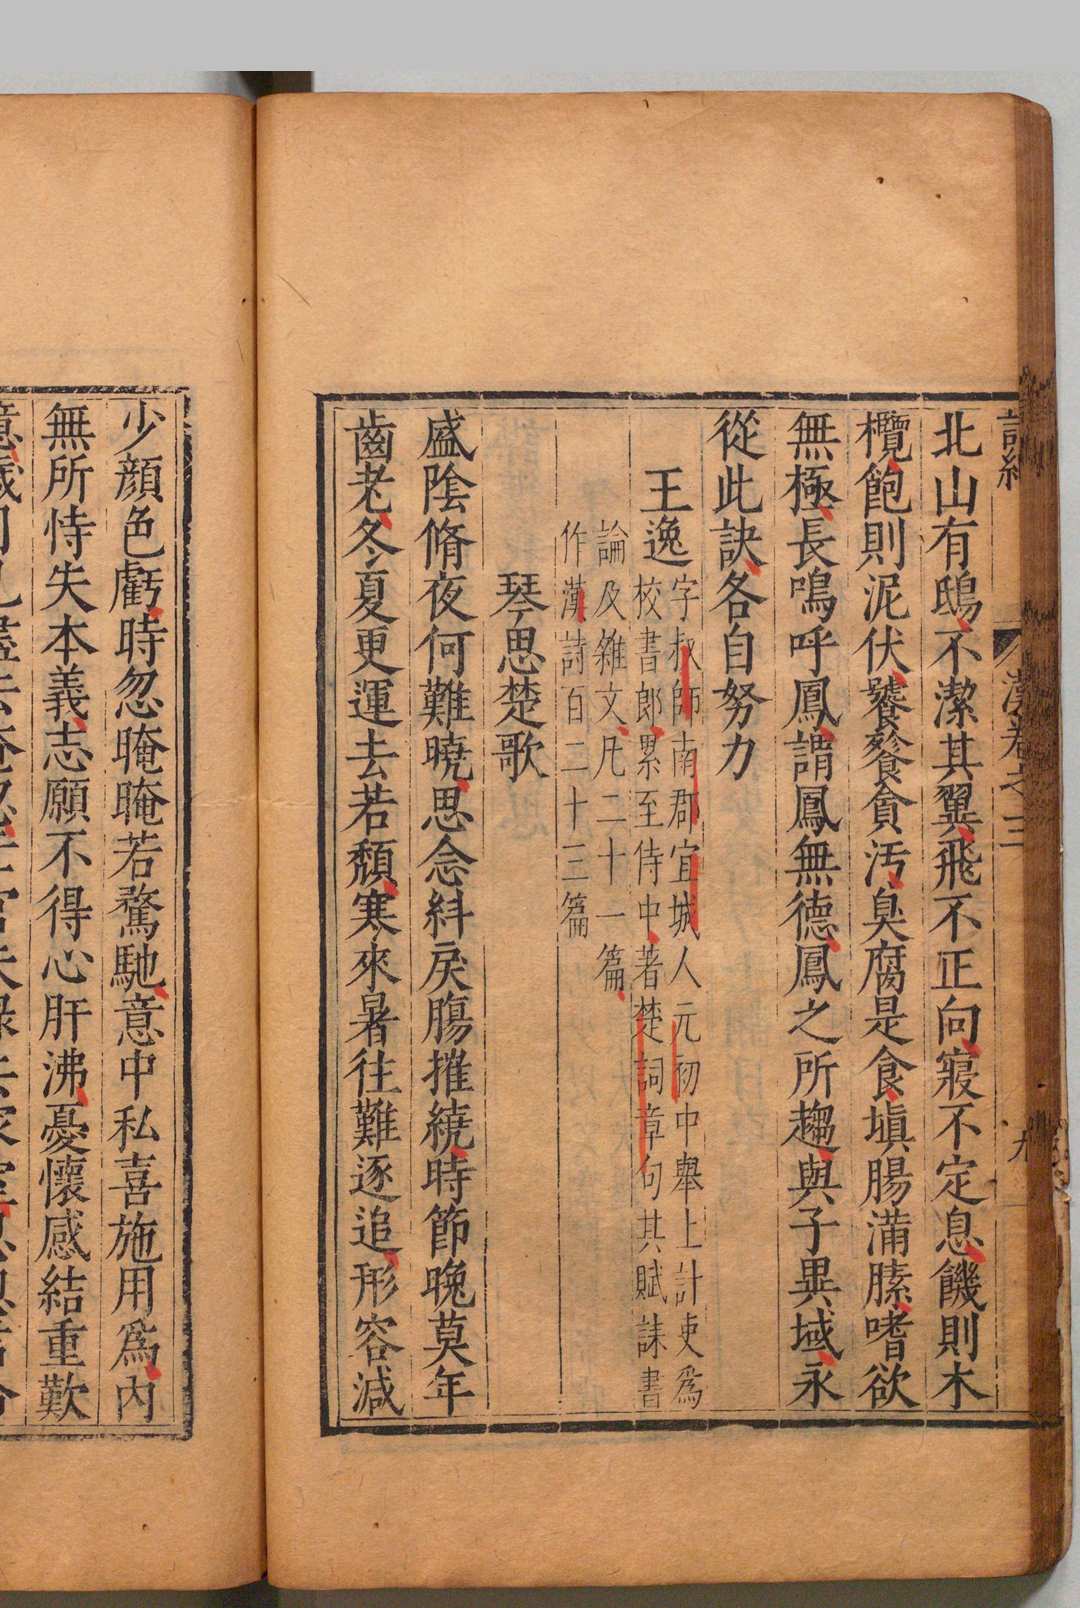 詩紀
漢卷之三
九
北山有鴟不潔其翼飛不正向寢不定息饑則木
欖飽則泥伏饕餮貪汚臭腐是食塡腸滿膆嗜欲
無極長鳴呼鳳謂鳳無德鳳之所趨與子異域永
從此訣各自努力
王逸
字叔師南郡宜城人元初中舉上計吏爲
校書郎累至侍中著楚詞章句其賦誄書
論及雜文凡二十一篇
作漢詩百二十三篇
琴思楚歌
盛陰脩夜何難曉思念紏戾腸摧繞時節晚莫年
齒老冬夏更運去若頹寒來暑往難逐追形容減
少顏色虧時忽晻晻若騖馳意中私喜施用爲內
無所恃失本義志願不得心肝沸憂懷感結重歎